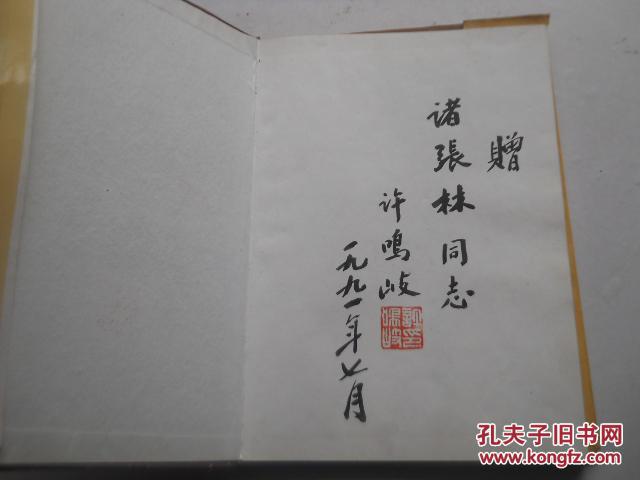 赠
诸張林同志
许鳴岐
一九九一年七月
許鳴岐印
孔夫子旧书网
www.kongfz.com